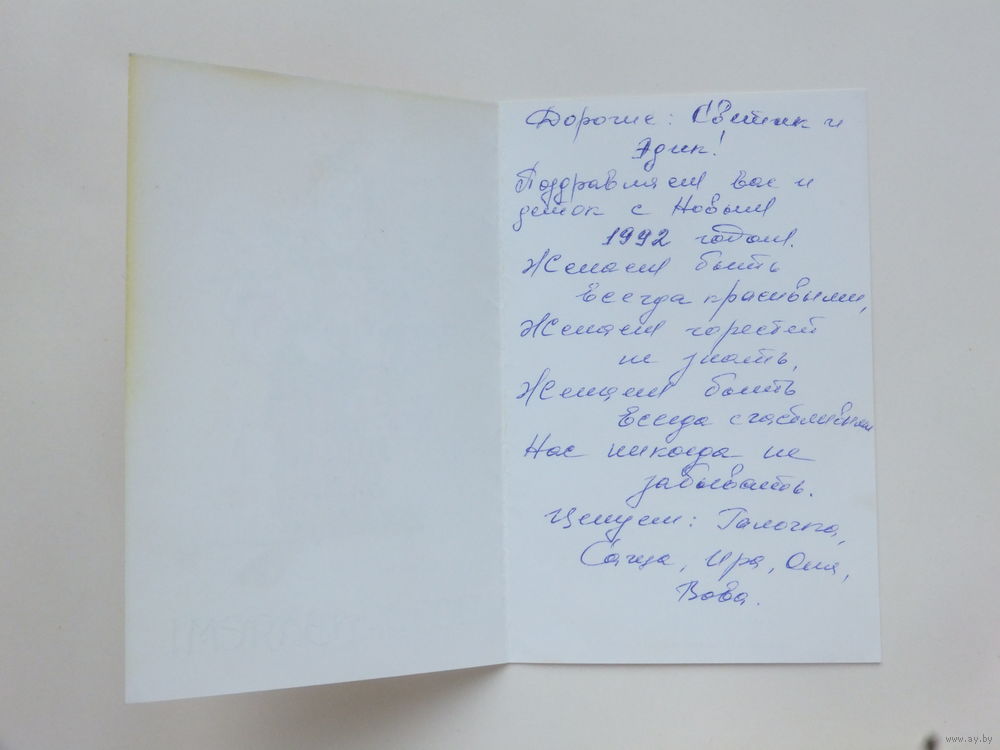 Дорогие: Светик и
Эдик!
Поздравляем вас и
деток с Новым
1992 годом.
Желаем быть
всегда красивыми,
Желаем горестей
не знать,
Желаем быть
всегда счастливыми
Нас никогда не
забывать.
Целуем: Галочка,
Саша, Ира, Оля,
Вова.
www.ay.by